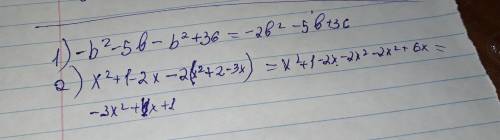 1) -b² - 5b - b² + 36 = -2b² - 5b + 36
2) x² + 1 - 2x - 2(x² + 2 - 3x) = x² + 1 - 2x - 2x² - 2x² + 6x =
-3x² + 4x + 1